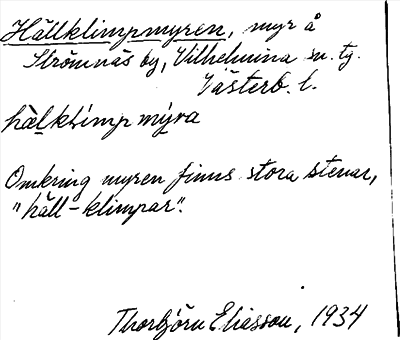 Hällklimpmyren, myr å
Strömnäs by, Vilhelmina sn. tg.
Västerb. l.
hälklimpmyra
Omkring myren finns stora stenar,
"häll-klimpar".
Thorbjörn Eliasson, 1934